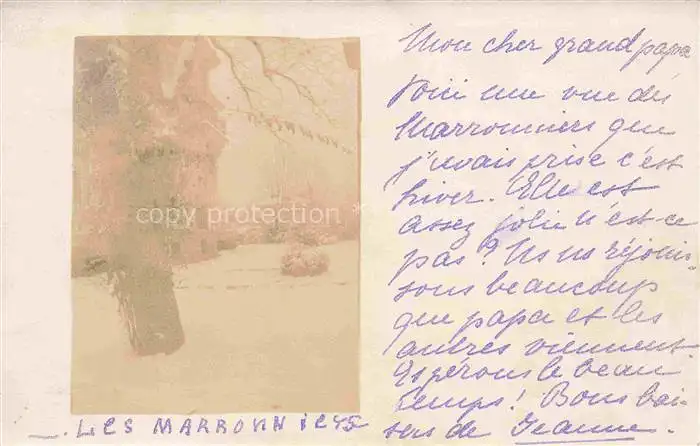 Mon cher grand papa
Voici une vue des
Marronniers que
j'avais prise c'est
hiver. Elle est
assez jolie n'est-ce
pas? Nous réjouis-
sons beaucoup
que papa et les
autres viennent.
Espérons le beau
temps! Bons bai-
sers de Jeanne.
copy protection
LES MARRONNIERS